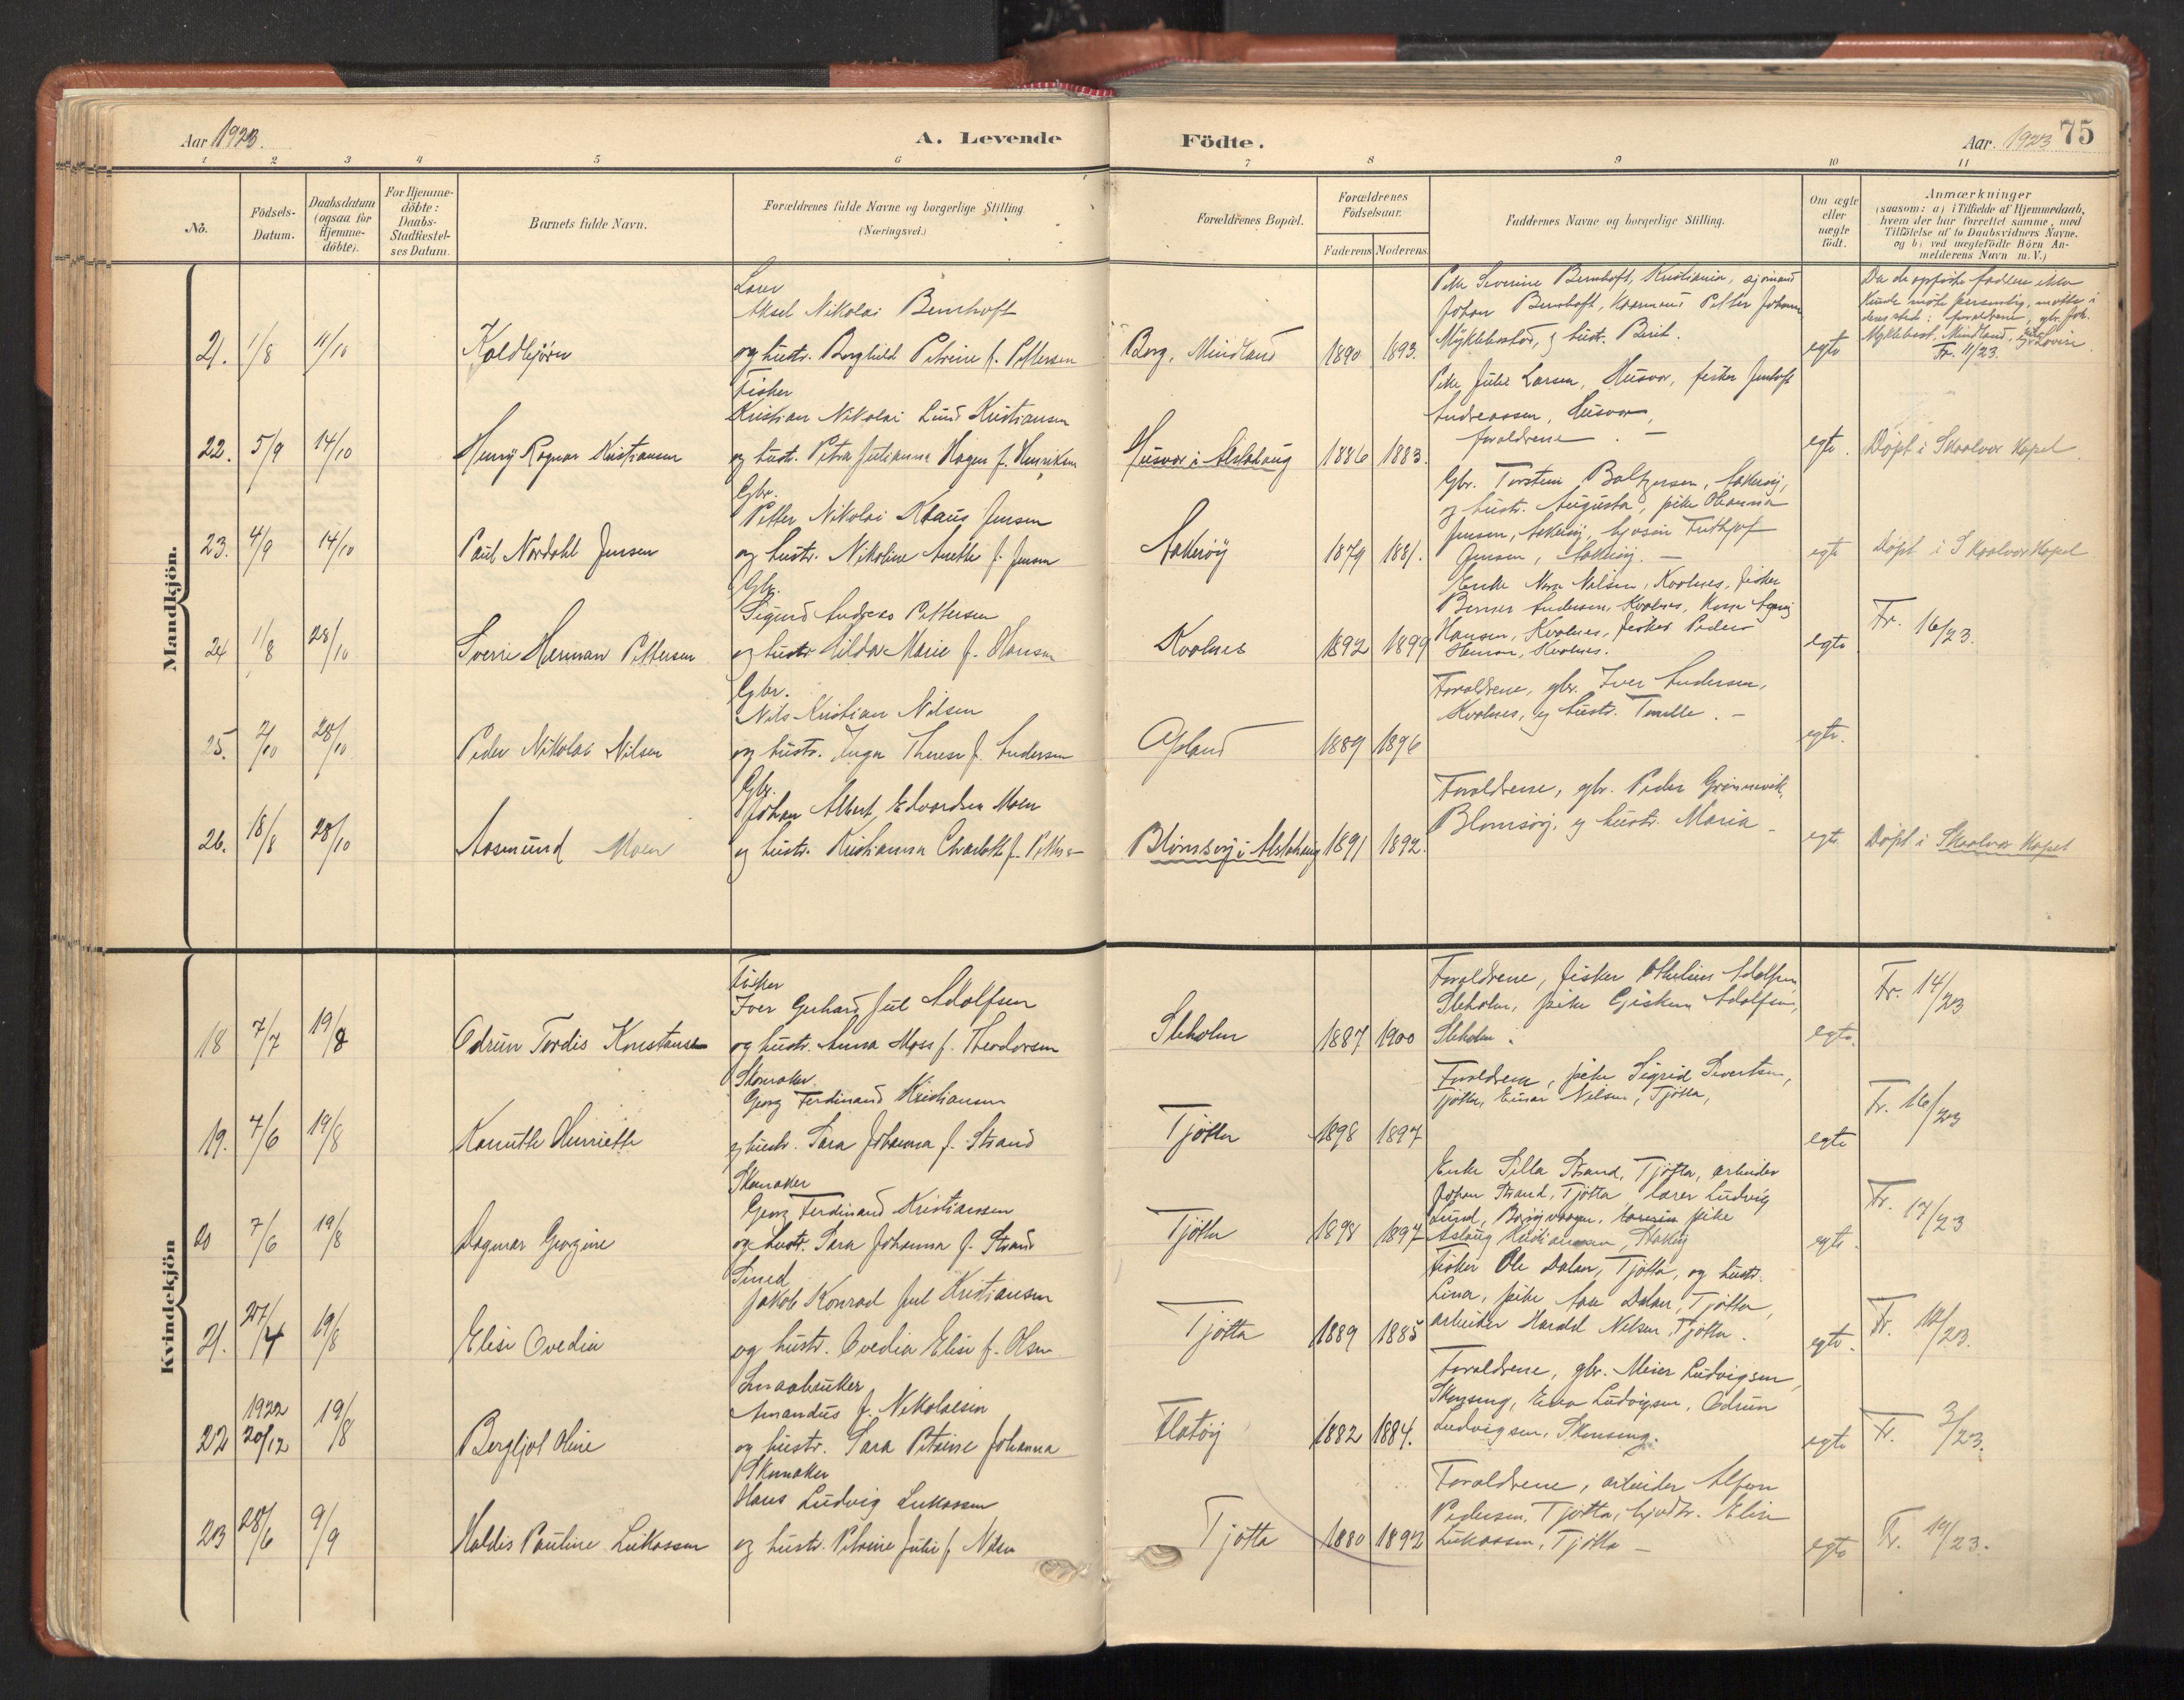 Aar 1923.
A. Levende
Födte.
Aar. 1923
75
1 2 3 4 5 6 7 8 9 10 11
No.
Födsels-Datum.
Daabsdatum (ogsaa for Hjemme-döbte).
For Hjemme-döbte: Daabs-Stadfæstel-ses Datum.
Barnets fulde Navn.
Forældrenes fulde Navne og borgerlige Stilling
(Næringsvei.)
Forældrenes Bopæl.
Forældrenes Födselsaar.
Faderens Moderens
Faddernes Navne og borgerlige Stilling.
Om ægte eller uægte födt.
Anmærkninger
(saasom: a) i Tilfælde af Hjemmedaab, hvem der har forrettet samme, med Tilföielse af to Daabsvidners Navne, og b) ved uægtefödte Börn An-melderens Navn m. V.)
Mandkjön.
21. 1/8 11/10 Koldbjörn
Lærer
Aksel Nikolai Bernhoft
og hustr. Borghild Petrine f. Pettersen
Borg, Mindland 1890 1893.
Pike Severine Bernhoft, Kristiania, sjömand
Johan Bernhoft, Petter Johan
Myklebostad, og hustr. Berit.
egte
Da de opførte faddere ikke
kunde møte personlig, møtte i
deres sted: forældrene, gbr. Joh.
Myklebost, Mindland,
Fr. 11/23.
22. 5/9 14/10 Henry Ragnar Kristiansen
Fisker
Kristian Nikolai Lund Kristiansen
og hustr. Petra Julianna Hagen f. Henriksen
Husvær i Alstahaug 1886 1883.
Pike Julie Larsen, Husvær, fisker
Andreassen, Husvær,
forældrene. —
egte. Döpt i Skaalvær Kapel.
23. 4/9 14/10 Paul Nordahl Jensen
Gbr.
Petter Nikolai Klaus Jensen
og hustr. Nikoline Anette f. Jensen
1879 1881.
Gbr. Torstein Baltzersen,
og hustr. Augusta, pike Johanna
Jensen,
Jensen,
egte Döpt i Skaalvær Kapel
24 1/8 28/10 Sverre Herman Pettersen
Gbr.
Sigurd Andreas Pettersen
og hustr. Hilda Marie f. Hansen
Kvalnes 1892 1899
Enke Nilsen, Kvalnes, fisker
Andersen, Kvalnes,
Hansen, Kvalnes, fisker Peder
Hansen, Kvalnes.
egte Fr. 16/23.
25. 2/10 28/10 Peder Nikolai Nilsen
Gbr.
Nils Kristian Nilsen
og hustr. Inga Therese f. Andersen
1889 1896
Forældrene, gbr. Iver Andersen,
Kvalnes, og hustr. —
egte.
26. 18/8 28/10 Aasmund Moen
Gbr.
Johan Albert Edvardsen Moen
og hustr. Kristianna Charlotte f.
Blomsøy i Alstahaug 1891 1892.
Forældrene, gbr. Peder Grönnevik,
Blomsøy, og hustr. Maria —
egte Döpt i Skaalvær Kapel
Kvindekjön
18 7/7 19/8 Odrun Tordis Konstanse
Fisker
Iver Gerhard Jul Adolfsen
og hustr. Anna Moss f. Theodorsen
Sleholm 1887 1900
Forældrene, fisker Adolfsen,
Sleholm, pike Adolfsen,
Sleholm.
egte. Fr. 14/23
19. 7/6 19/8 Kanuthe Henriette
Skomaker
Georg Ferdinand Kristiansen
og hustr. Sara Johanna f. Strand
Tjötta 1898 1897
Forældrene, pike Sigrid Sivertsen,
Tjötta, Einar Nilsen, Tjötta,
egte Fr. 16/23
20 7/6 19/8 Dagmar Georgine
Skomaker
Georg Ferdinand Kristiansen
og hustr. Sara Johanna f. Strand
Tjötta 1898 1897
Enke Strand, Tjötta, arbeider
Johan Strand, Tjötta lærer Ludvig
Lund, pike
Aslaug Kristiansen,
egte. Fr. 17/23
21. 27/4 19/8 Elise Ovedia
Smed
Jakob Konrad Jul Kristiansen
og hustr. Ovedia Elise f. Olsen
Tjötta 1889 1885
Fisker Ole Dalen, Tjötta, og hustr.
Lina, pike Dalen, Tjötta,
arbeider Harald Nilsen, Tjötta.
egte. Fr. 18/23.
22 1922 20/12 19/8 Bergljot Oline
Smaabruker
Amandus J. Nikolaisen
og hustr. Sara Petrine Johanna
Flatöy 1882 1884.
Forældrene, gbr. Meier Ludvigsen,
Skonseng, Ludvigsen, Odrun
Ludvigsen, Skonseng.
egte Fr. 3/23.
23 28/6 9/9 Haldis Pauline Lukassen
Skomaker
Hans Ludvig Lukassen
og hustr. Petrine Julie f. Nilsen
Tjötta 1880 1892
Forældrene, arbeider Alfon
Pedersen, Tjötta, Elise
Lukassen, Tjötta —
egte Fr. 19/23.